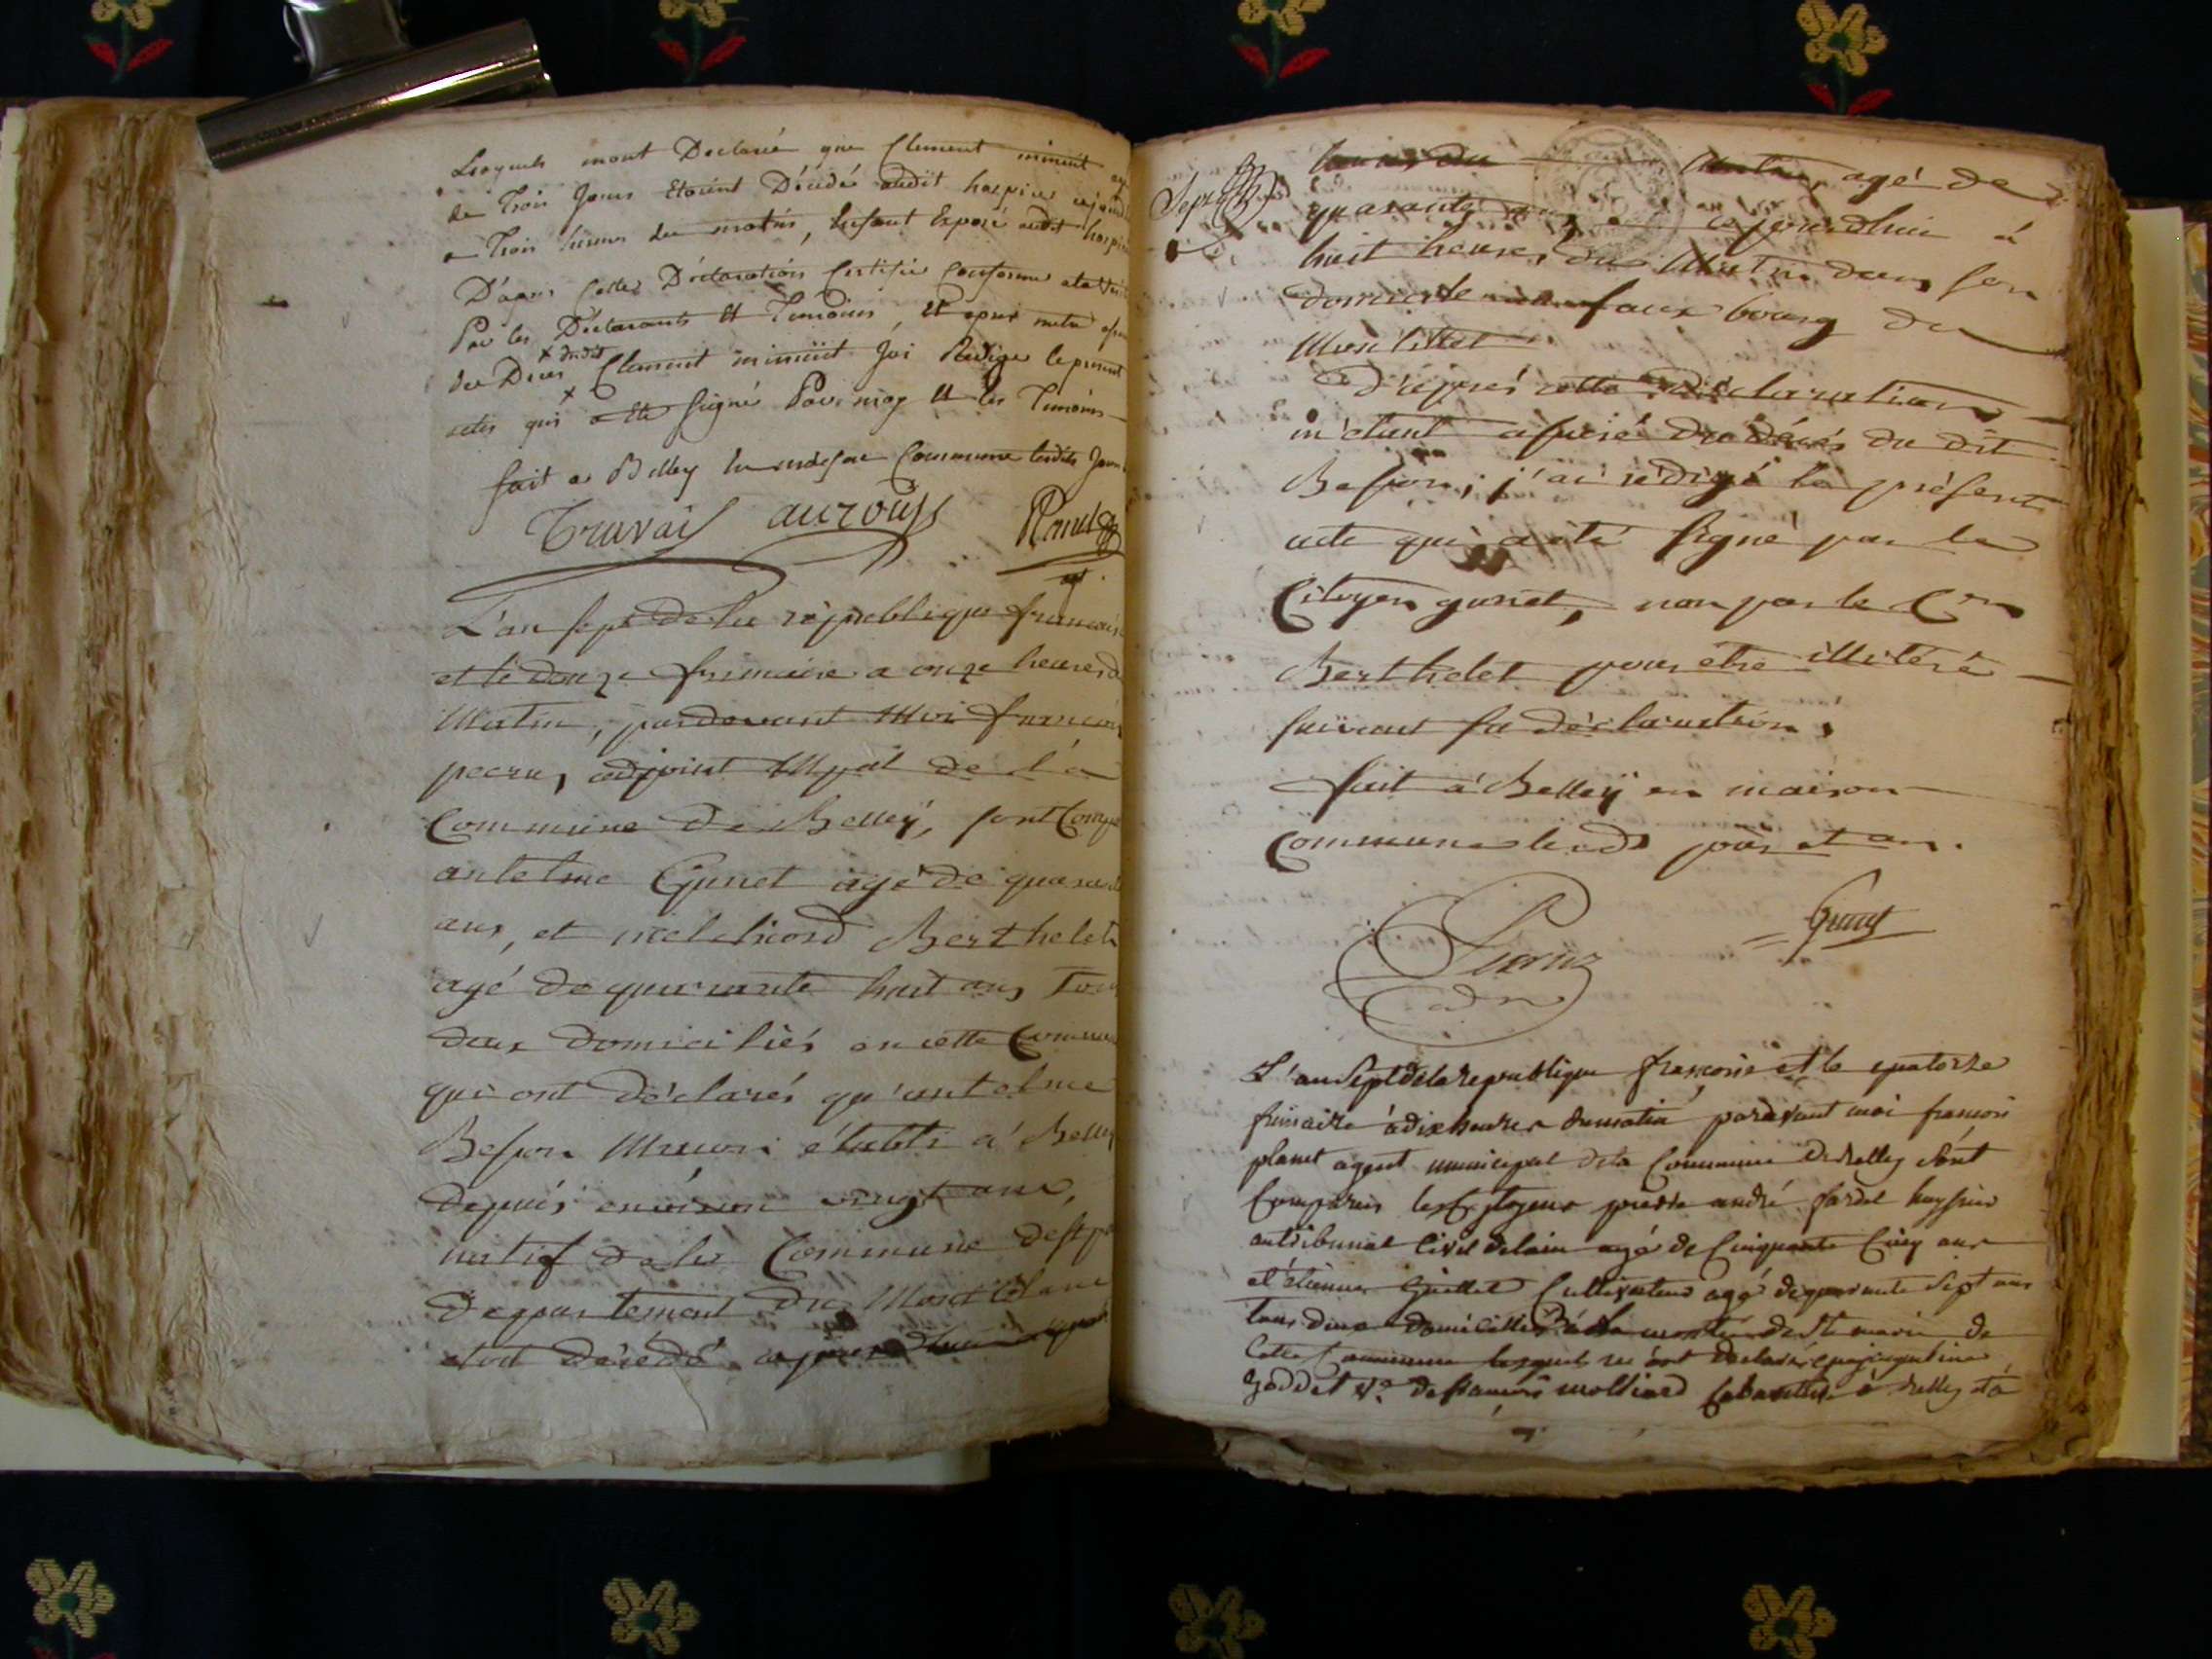 Lesquels mont Declaré que Clement minuit agé
de Trois Jours Etoient Décédé audit hospice cejourd
a Trois heures du matin, Enfant Exposé audit hospi
D'apres cette Déclaration Certifié Conforme a la Veri
Par les Déclarants et Temoins, et apres metre assu
du Deces dudit Clement minuit Jai Redigé le present
acte qui a Eté signé Par moy et les Temoins
fait a Belley en maison Commune lesdits Jour
Travail
L'an sept de la république francais
et le douze frimaire a onze heures d
Matin, pardevant Moi francois
adjoint Mpal de la
Commune de Belleÿ, sont Comp
antelme Gunet agé de quarante
ans, et melchiord Berthelet
agé de quarante huit ans Tous
deux domiciliés en cette Commune
qui ont déclarés qu'antelme
Besson Maçon établi à Belley
depuis environ vingt ans,
natif de la Commune de st
departement du Mont Blanc
etoit décédé cejourdhui
Sept
agé de
quarante ans cejourdhui à
huit heures du Matin dans son
domicile faux bourg du
D'après cette déclaration
m'étant assuré du décès du dit
Besson, j'ai rédigé le présent
acte qui a été signé par le
Citoyen gunet, non par le Cen
Berthelet pour être illitéré
suivant sa déclaration,
fait à Belleÿ en maison
commune lesds jour et an.
Gunet
adn
L'an Sept de la republique françoise et le quatorze
frimaire à dix heures du matin pardevant moi francois
planet agent municipal de la Commune de Belley sont
Comparus les Citoyens pierre andré fardel huyssier
au tribunal Civil de lain agé de Cinquante Cinq ans
et étienne Guillet Cultivateur agé de quarante Sept ans
tous deux domiciliés à la montée de St marie de
Cette Commune lesquels m'ont declaré que jaqueline
goddet Ve de francois molliard Cabaretier à Belley età